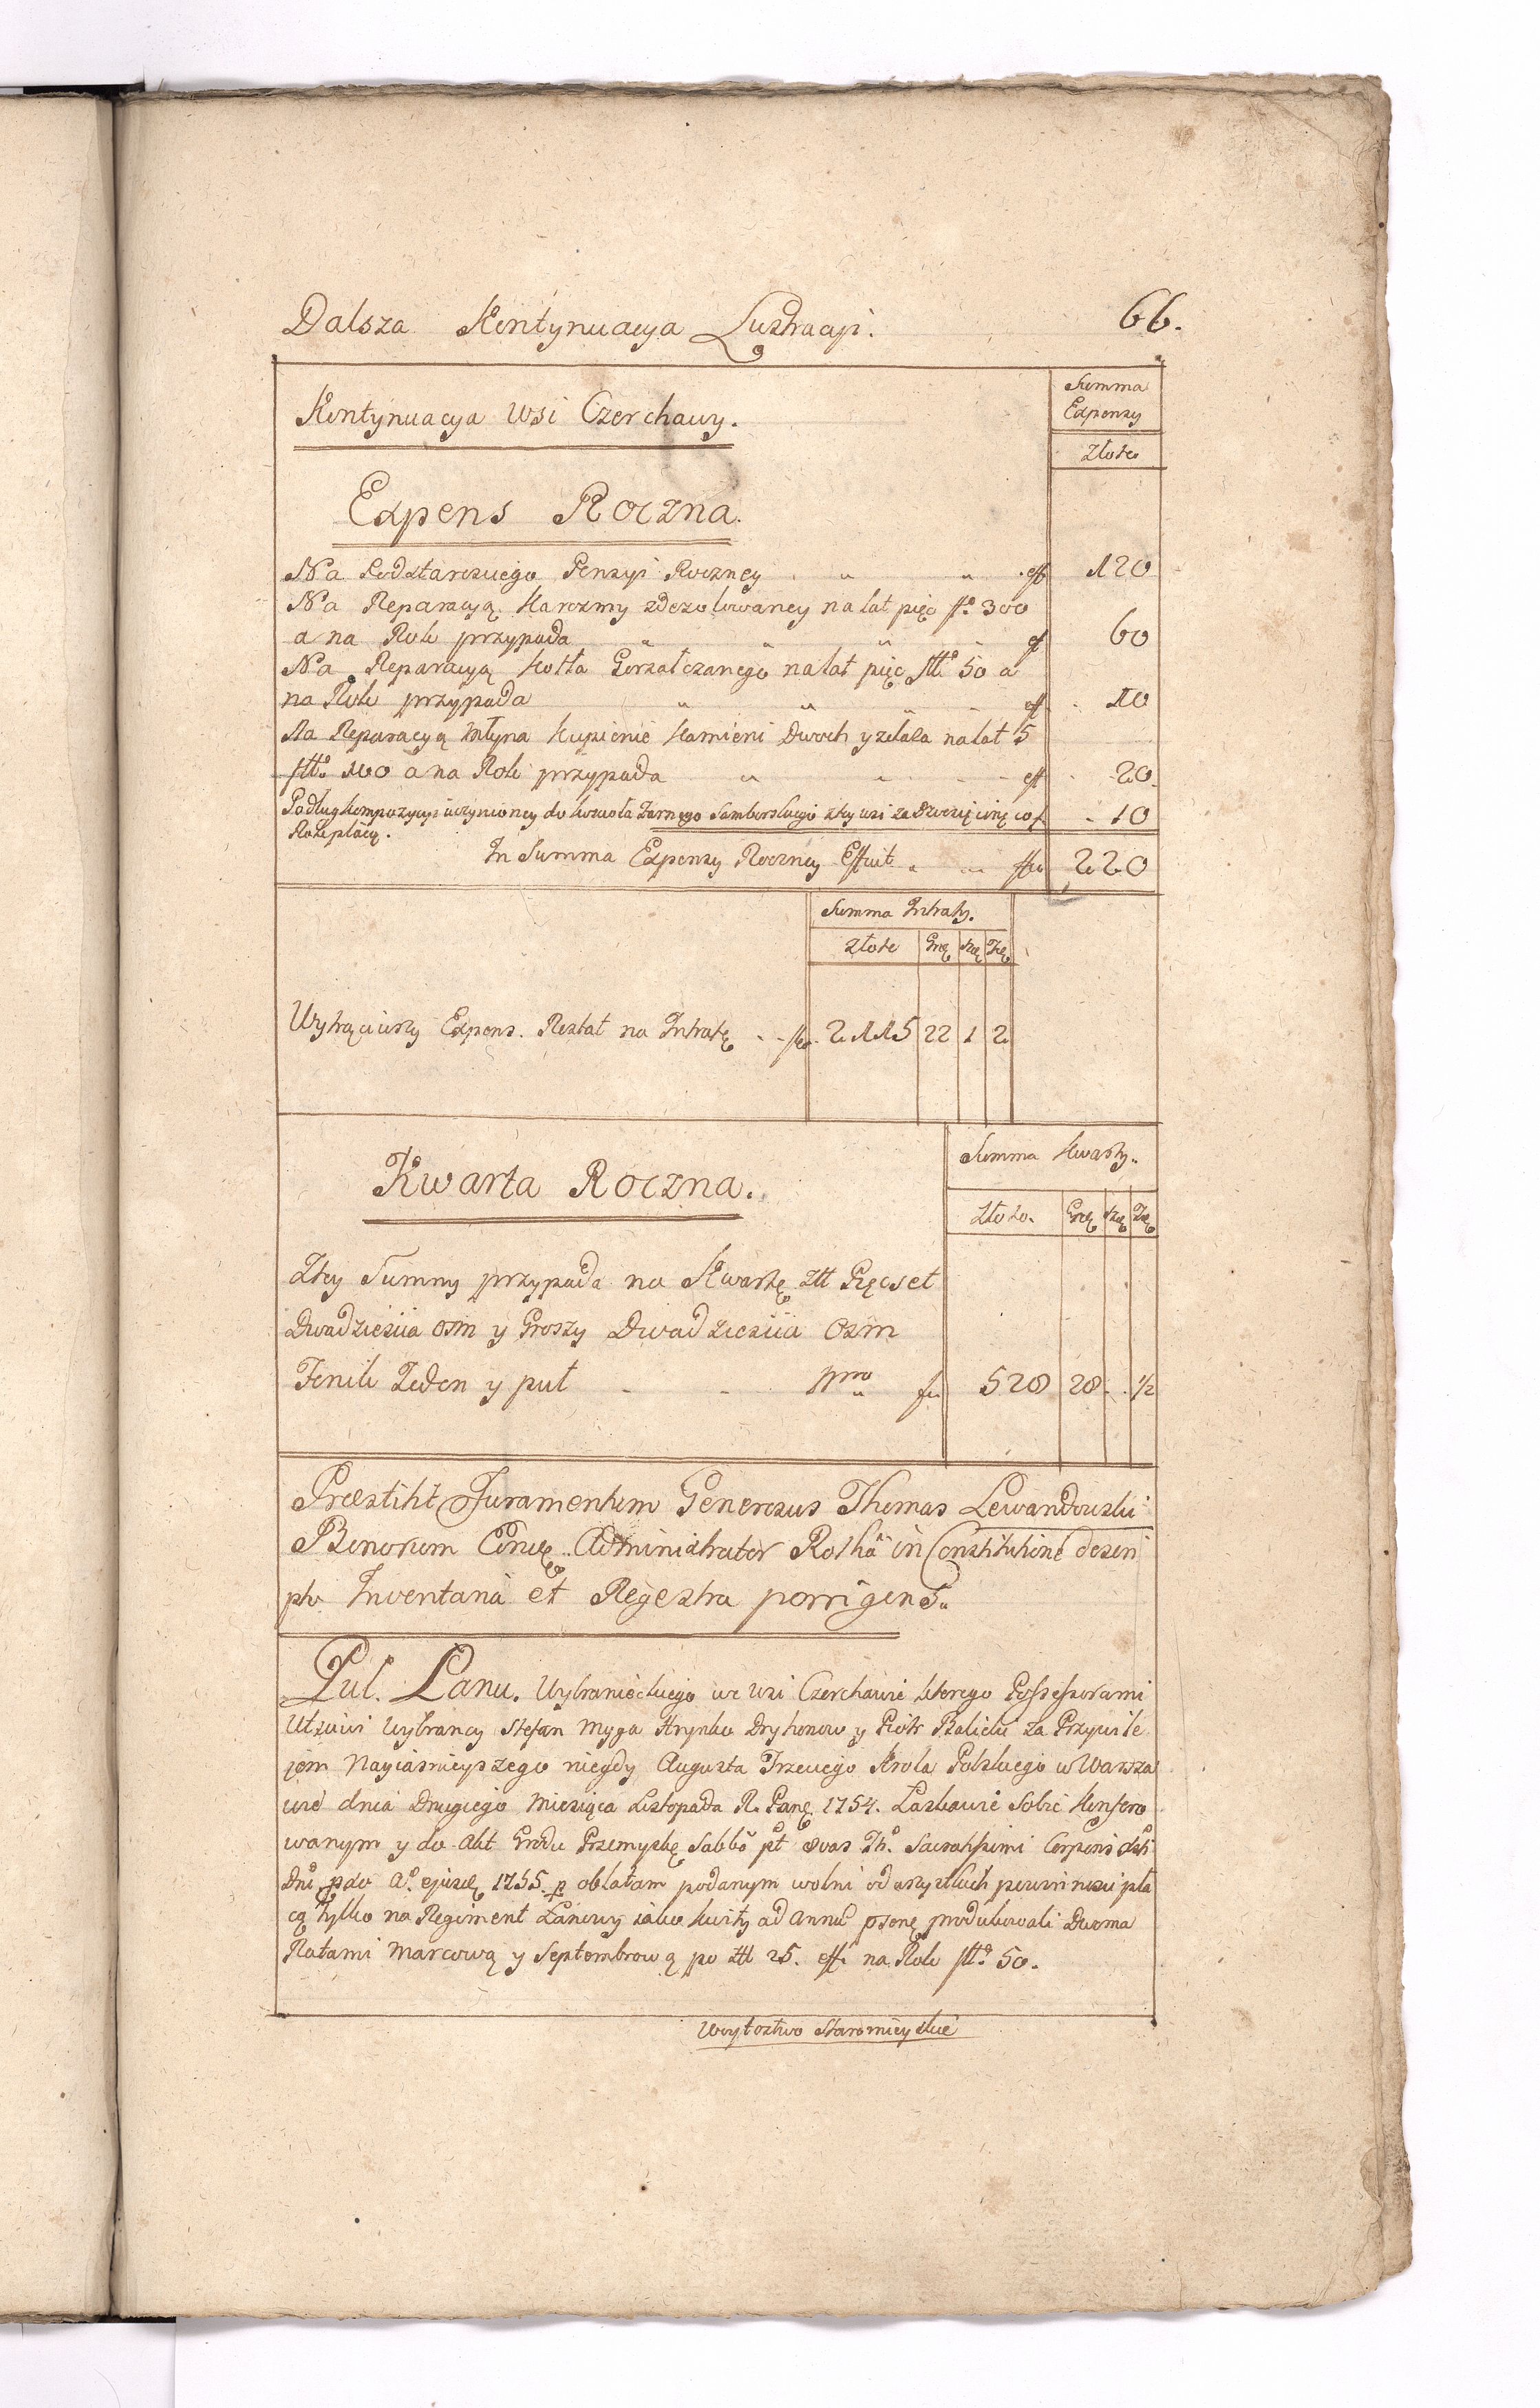 Dalsza Kontynuacya Lustracyi. 66.
Kontynuacya Wsi Czerchawy.
Summa
Expensy
Złote
Expens Roczna.
Na Podstarosciego Pensyi Roczney 120
Na Reparacyą Karczmy zdezolowaney na lat pięc 300
a na Rok przypada 60
Na Reparacyą Kotła Gorzałczanego na lat pięc 50 a
na Rok przypada 10
Na Reparacyą Młyna Kupienie Kamieni Dwoch y zelaza na lat 5
100 a na Rok przypada 20
Podług Kompozycyi uczynioney do Koscioła Farnego Samborskiego z tey wsi za Dziesięcinę co 10
Rok płacą.
In Summa Expensy Roczney Effuit 220
Summa Intraty.
Złote Grę Szę
Wytrąciwszy Expens. Restat na Intratę 2115 22 1 2
Kwarta Roczna.
Summa Kwarty.
Złote. Grę Szę
Z tey Summy przypada na Kwartę Ztt Pięcset
Dwadziescia osm y Groszy Dwadziescia Osm
Fenik Jeden y puł 528 28 1/2
Præstitit Juramentum Generosus Thomas Lewandowski
Bonorum Administrator Rothã in Constitutione descri
pto Inventaria et Regestra porrigens.
Puł. Łanu. Wybranieckiego we Wsi Czerchawie ktorego Possessorami
Utciwi Wybrancy Stefan Myga Hrynko Dryhonow y Piotr Balicki za Przywile
jem Nayiasnieyszego niegdy Augusta Trzeciego Krola Polskiego w Warsza
wie dnia Drugiego Miesiąca Listopada R. Panę 1754. Łaskawie Sobie Konfero
wanym y do Akt Grodu Przemyskę Sabbõ Sacratissimi Corporis
Dni 1755. oblatam podanym wolni od wszystkich powinnosci pła
cą tylko na Regiment Łanowy iako kwity ad Annũ produkowali Dwoma
Ratami Marcową y Septembrową po Ztt 25. na Rok 50.
Woytostwo Staromieyskie